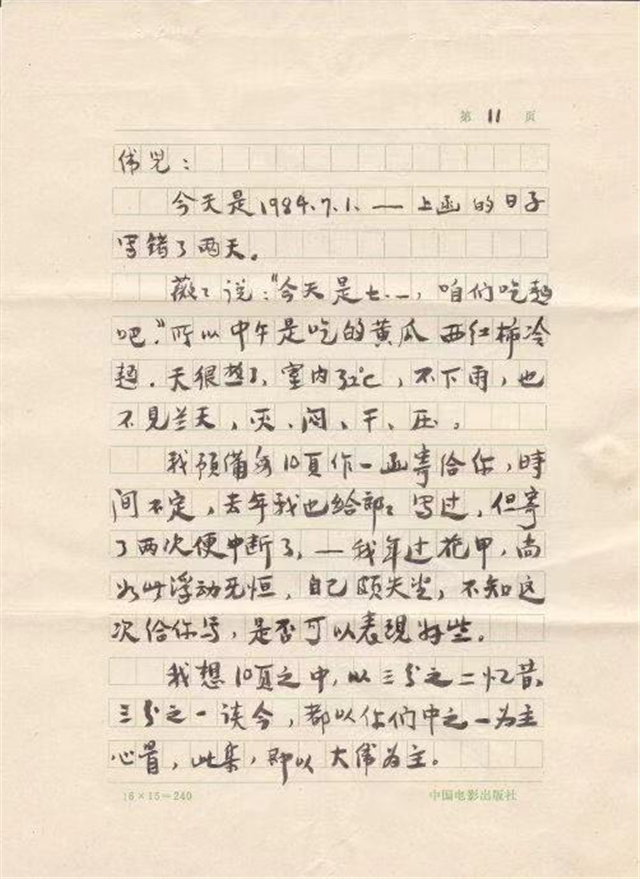 第 11 页
伟儿：
今天是1984.7.1.—上函的日子
写错了两天。
薇々说：“今天是七.一，咱们吃麺
吧。”所以中午是吃的黄瓜西红柿冷
麺．天很热了，室内32℃，不下雨，也
不见兰天，灰、闷、干、压。
我预备每10頁作一函寄给你，時
间不定，去年我也给部々写过，但寄
了两次便中断了，—我年过花甲，尚
如此浮动无恒，自己颇失望，不知这
次给你写，是否可以表現好些。
我想10頁之中，以三分之二忆昔，
三分之一谈今，都以你们中之一为主
心骨，此集，即以大伟为主。
16×15=240
中国电影出版社